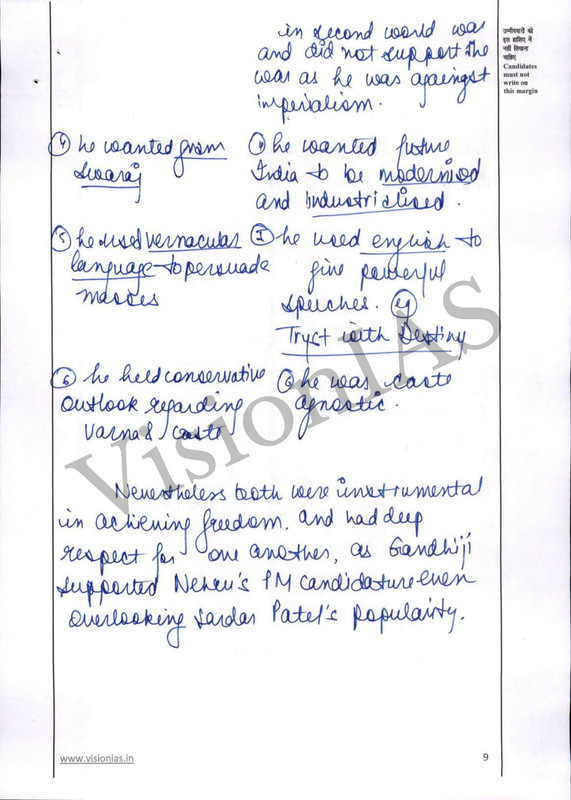 in second world war
and did not support the
war as he was againgst
imperialism.
उम्मीदवारों को
इस हाशिए में
नहीं लिखना
चाहिए
Candidates
must not
write on
this margin
④ he wanted gram
Swaraj
④ he wanted future
India to be modernised
and industrialised.
⑤ he used vernacular
language to persuade
masses
⑤ he used english to
give powerful
speeches. eg
Tryst with Destiny
⑥ he held conservative
outlook regarding
varna & caste
⑥ he was caste
agnostic.
VisionIAS
Nevertheless both were instrumental
in achieving freedom. and had deep
respect for one another, as Gandhiji
supported Nehru's PM candidature even
overlooking Sardar Patel's popularity.
www.visionias.in
9